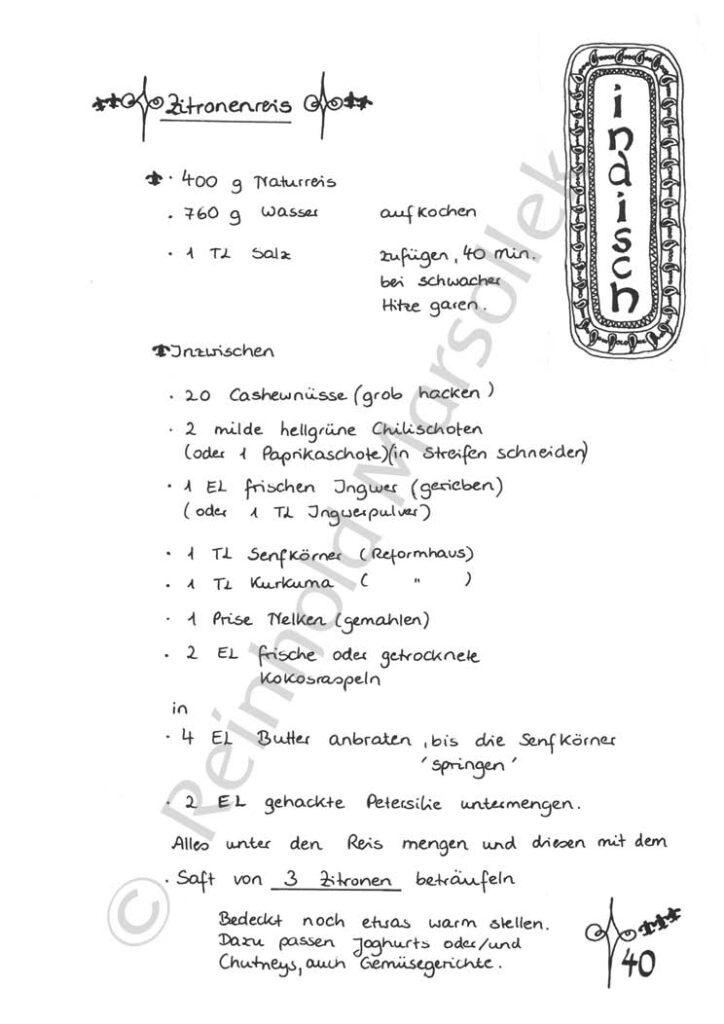 Zitronenreis
indisch
· 400 g Naturreis
· 760 g Wasser aufkochen
· 1 TL Salz zufügen, 40 min.
bei schwacher
Hitze garen.
Inzwischen
· 20 Cashewnüsse (grob hacken)
· 2 milde hellgrüne Chilischoten
(oder 1 Paprikaschote)(in Streifen schneiden)
· 1 EL frischen Ingwer (gerieben)
(oder 1 TL Ingwerpulver)
· 1 TL Senfkörner (Reformhaus)
· 1 TL Kurkuma ( " )
· 1 Prise Nelken (gemahlen)
· 2 EL frische oder getrocknete
Kokosraspeln
in
· 4 EL Butter anbraten, bis die Senfkörner
'springen'
· 2 EL gehackte Petersilie untermengen.
Alles unter den Reis mengen und diesen mit dem
· Saft von 3 Zitronen beträufeln
Bedeckt noch etwas warm stellen.
Dazu passen Joghurts oder/und
Chutneys, auch Gemüsegerichte.
40
© Reinhold Marsollek